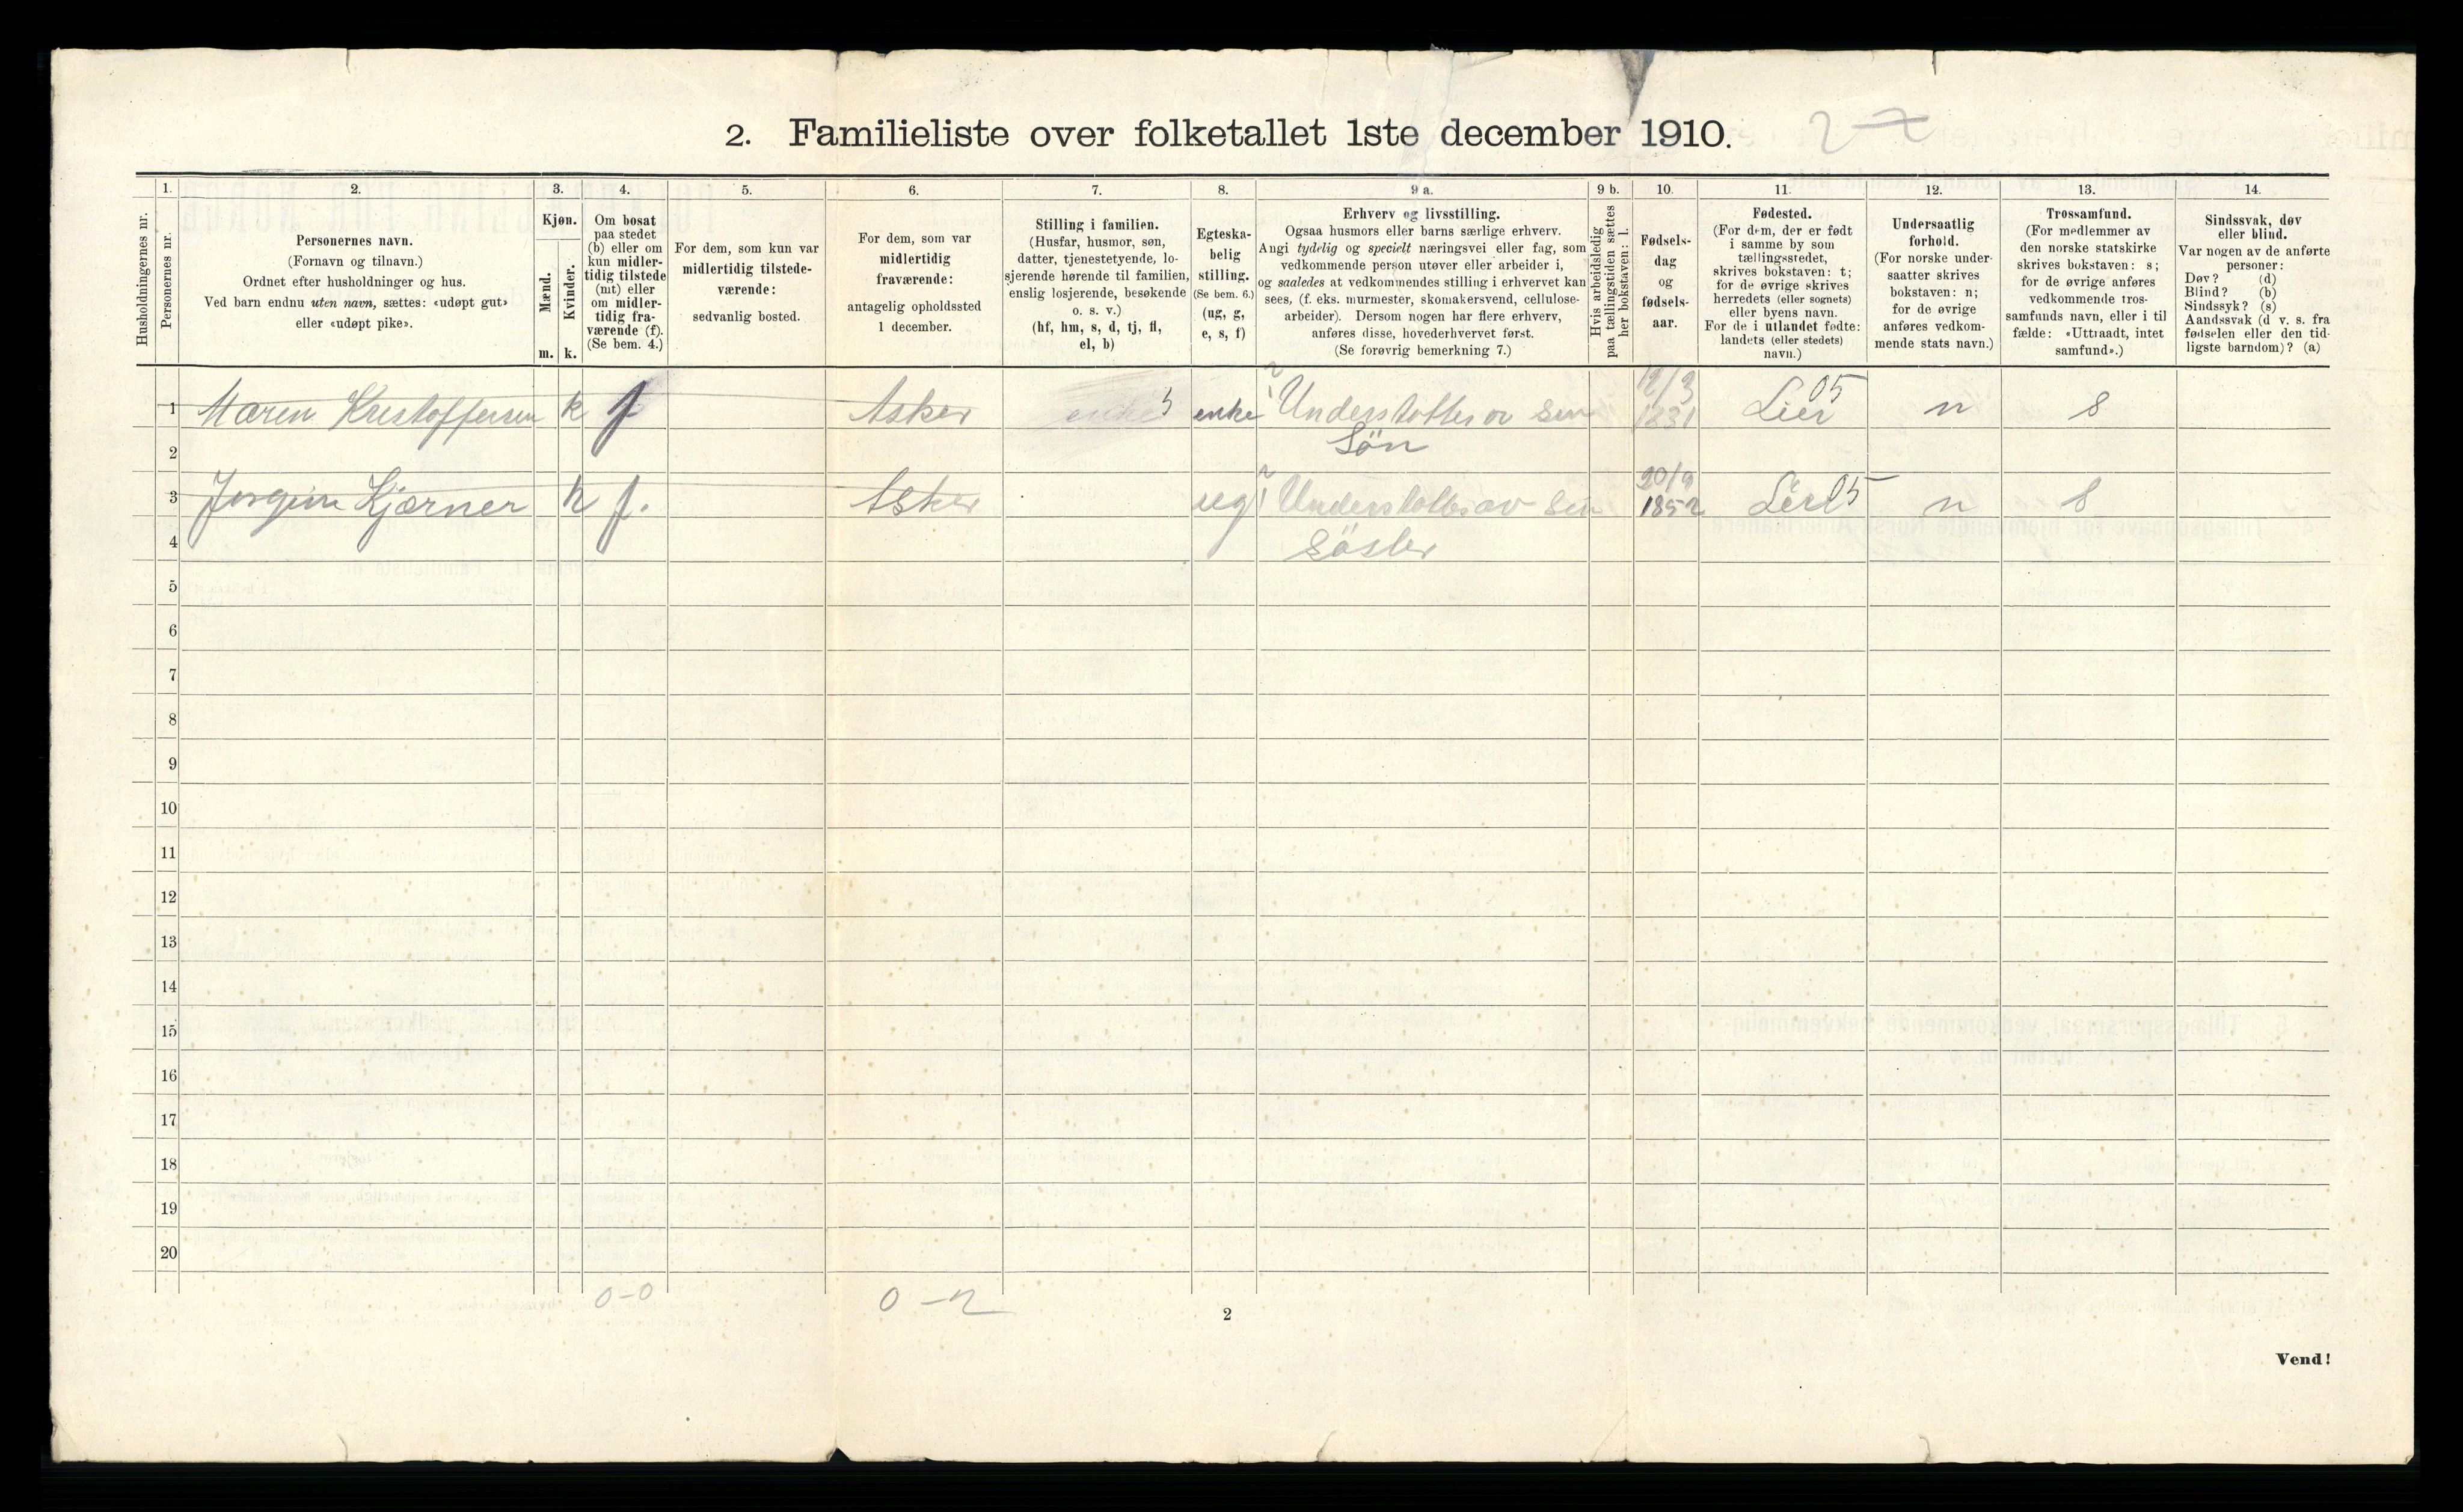 2. Familieliste over folketallet 1ste december 1910.
1.
2.
3.
4.
5.
6.
7.
8.
9 a.
9 b.
10.
11.
12.
13.
14.
Husholdningernes nr.
Personernes nr.
Personernes navn.
(Fornavn og tilnavn.)
Ordnet efter husholdninger og hus.
Ved barn endnu uten navn, sættes: «udøpt gut»
eller «udøpt pike».
Kjøn.
Mænd.
Kvinder.
m.
k.
Om bosat
paa stedet
(b) eller om
kun midler-
tidig tilstede
(mt) eller
om midler-
tidig fra-
værende (f).
(Se bem. 4.)
For dem, som kun var
midlertidig tilstede-
værende:
sedvanlig bosted.
For dem, som var
midlertidig
fraværende:
antagelig opholdssted
1 december.
Stilling i familien.
(Husfar, husmor, søn,
datter, tjenestetyende, lo-
sjerende hørende til familien,
enslig losjerende, besøkende
o. s. v.)
(hf, hm, s, d, tj, fl,
el, b)
Egteska-
belig
stilling.
(Se bem. 6.)
(ug, g,
e, s, f)
Erhverv og livsstilling.
Ogsaa husmors eller barns særlige erhverv.
Angi tydelig og specielt næringsvei eller fag, som
vedkommende person utøver eller arbeider i,
og saaledes at vedkommendes stilling i erhvervet kan
sees, (f. eks. murmester, skomakersvend, cellulose-
arbeider). Dersom nogen har flere erhverv,
anføres disse, hovederhvervet først.
(Se forøvrig bemerkning 7.)
Hvis arbeidsledig
paa tællingstiden sættes
her bokstaven: l.
Fødsels-
dag
og
fødsels-
aar.
Fødested.
(For dem, der er født
i samme by som
tællingsstedet,
skrives bokstaven: t;
for de øvrige skrives
herredets (eller sognets)
eller byens navn.
For de i utlandet fødte:
landets (eller stedets)
navn.)
Undersaatlig
forhold.
(For norske under-
saatter skrives
bokstaven: n;
for de øvrige
anføres vedkom-
mende stats navn.)
Trossamfund.
(For medlemmer av
den norske statskirke
skrives bokstaven: s;
for de øvrige anføres
vedkommende tros-
samfunds navn, eller i til
fælde: «Uttraadt, intet
samfund».)
Sindssvak, døv
eller blind.
Var nogen av de anførte
personer:
Døv? (d)
Blind? (b)
Sindssyk? (s)
Aandssvak (d v. s. fra
fødselen eller den tid-
ligste barndom)? (a)
1 Maren Kristoffersen k f Asker enke Understøttes av sin 12/3 1831 Lier 05 n s
2 Søn
3 Jørgine Kjærner k f. Asker ug Understøttes av sin 20/9 1852 Lier 05 n s
4 Søster
5
6
7
8
9
10
11
12
13
14
15
16
17
18
19
20
0-0
0-2
2
Vend!